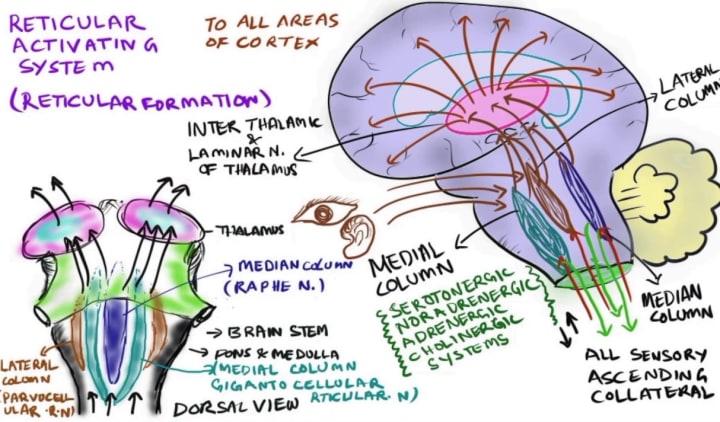 RETICULAR
ACTIVATING
SYSTEM
(RETICULAR FORMATION)
TO ALL AREAS
OF CORTEX
INTER THALAMIC
&
LAMINAR N.
OF THALAMUS
LATERAL
COLUMN
THALAMUS
MEDIAN COLUMN
(RAPHE N.)
MEDIAL
COLUMN
SEROTONERGIC
NORADRENERGIC
ADRENERGIC
CHOLINERGIC
SYSTEMS
MEDIAN
COLUMN
BRAIN STEM
PONS & MEDULLA
(MEDIAL COLUMN
GIGANTO CELLULAR
RTICULAR. N)
LATERAL
COLUMN
(PARVOCELL
ULAR .R.N)
DORSAL VIEW
ALL SENSORY
ASCENDING
COLLATERAL